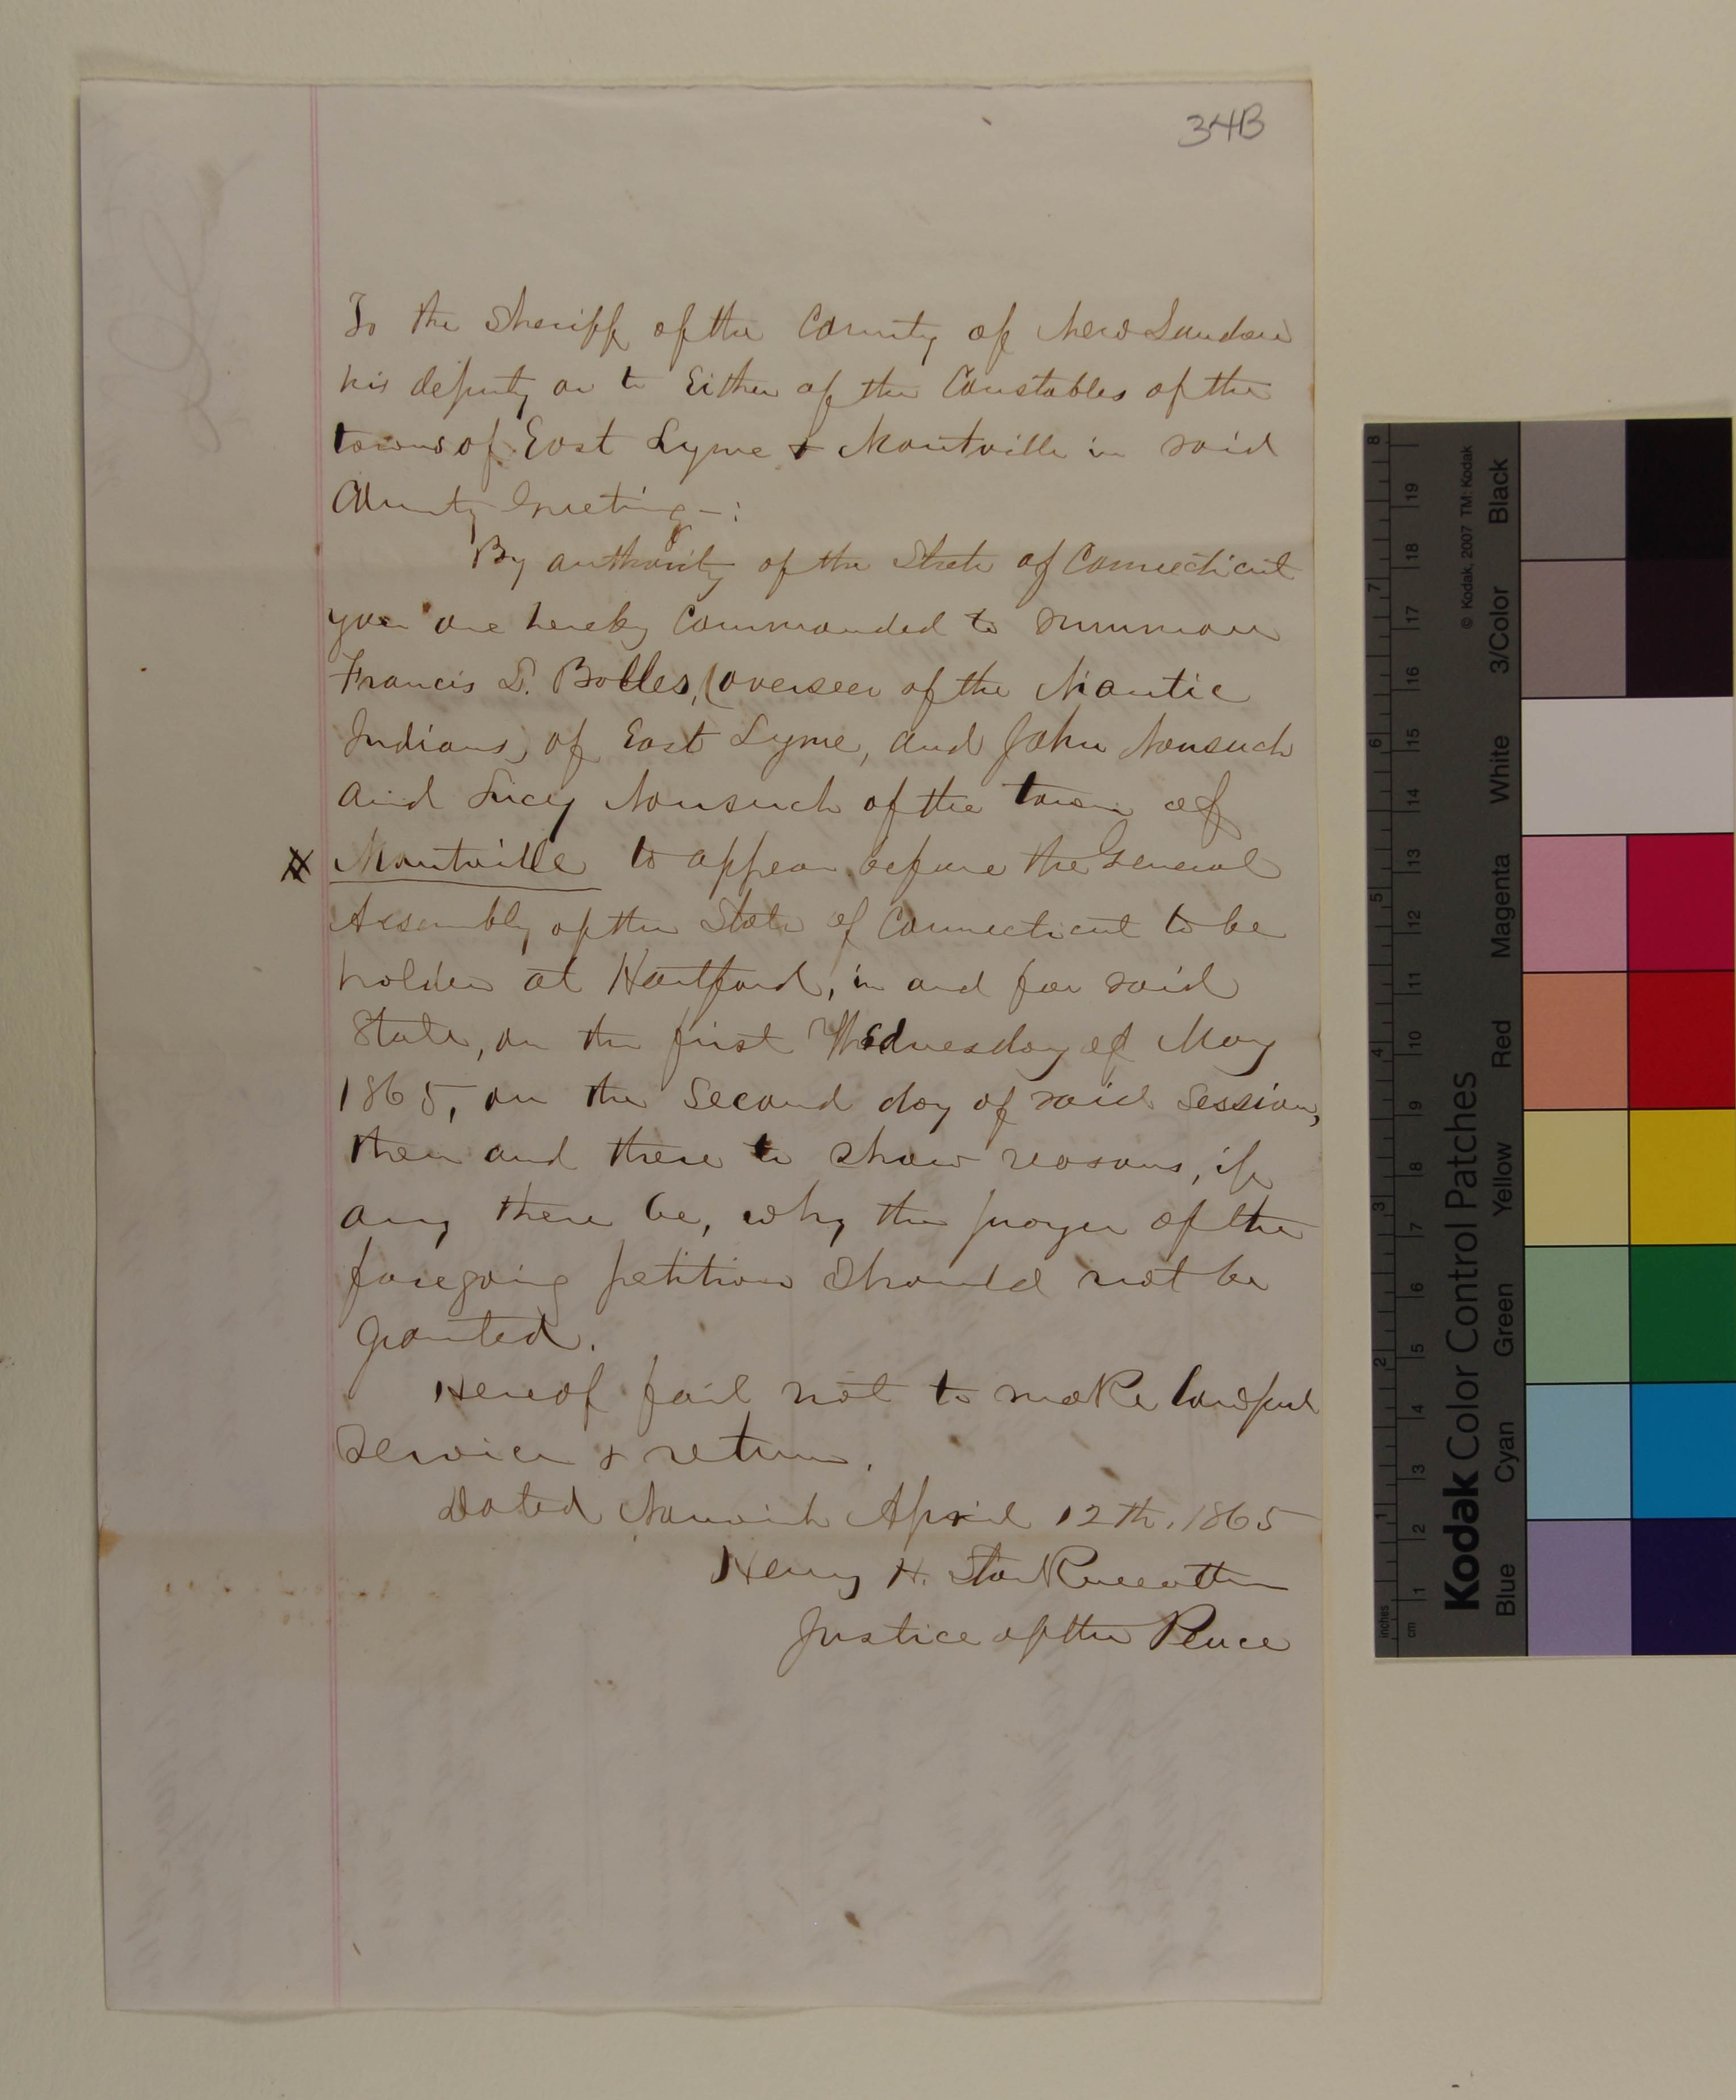 34B
To the Sheriff of the County of New London
his deputy or to Either of the Constables of the
towns of East Lyme & Montville in said
County Greeting -:
By authority of the State of Connecticut
you are hereby Commanded to summon
Francis L. Bolles, (overseer of the Niantic
Indians) of East Lyme, and John Nonsuch
and Lucy Nonsuch of the town of
Montville to appear before the General
Assembly of the State of Connecticut to be
holden at Hartford, in and for said
State, on the first Wednesday of May
1865, on the second day of said session,
then and there to show reasons, if
any there be, why the prayer of the
foregoing petition should not be
granted.
Hereof fail not to make lawful
service & return.
Dated Norwich April 12th, 1865
Henry H. Starkweather
Justice of the Peace
© Kodak, 2007 TM: Kodak
Kodak Color Control Patches
Blue Cyan Green Yellow Red Magenta White 3/Color Black
inches 1 2 3 4 5 6 7 8
cm 1 2 3 4 5 6 7 8 9 10 11 12 13 14 15 16 17 18 19